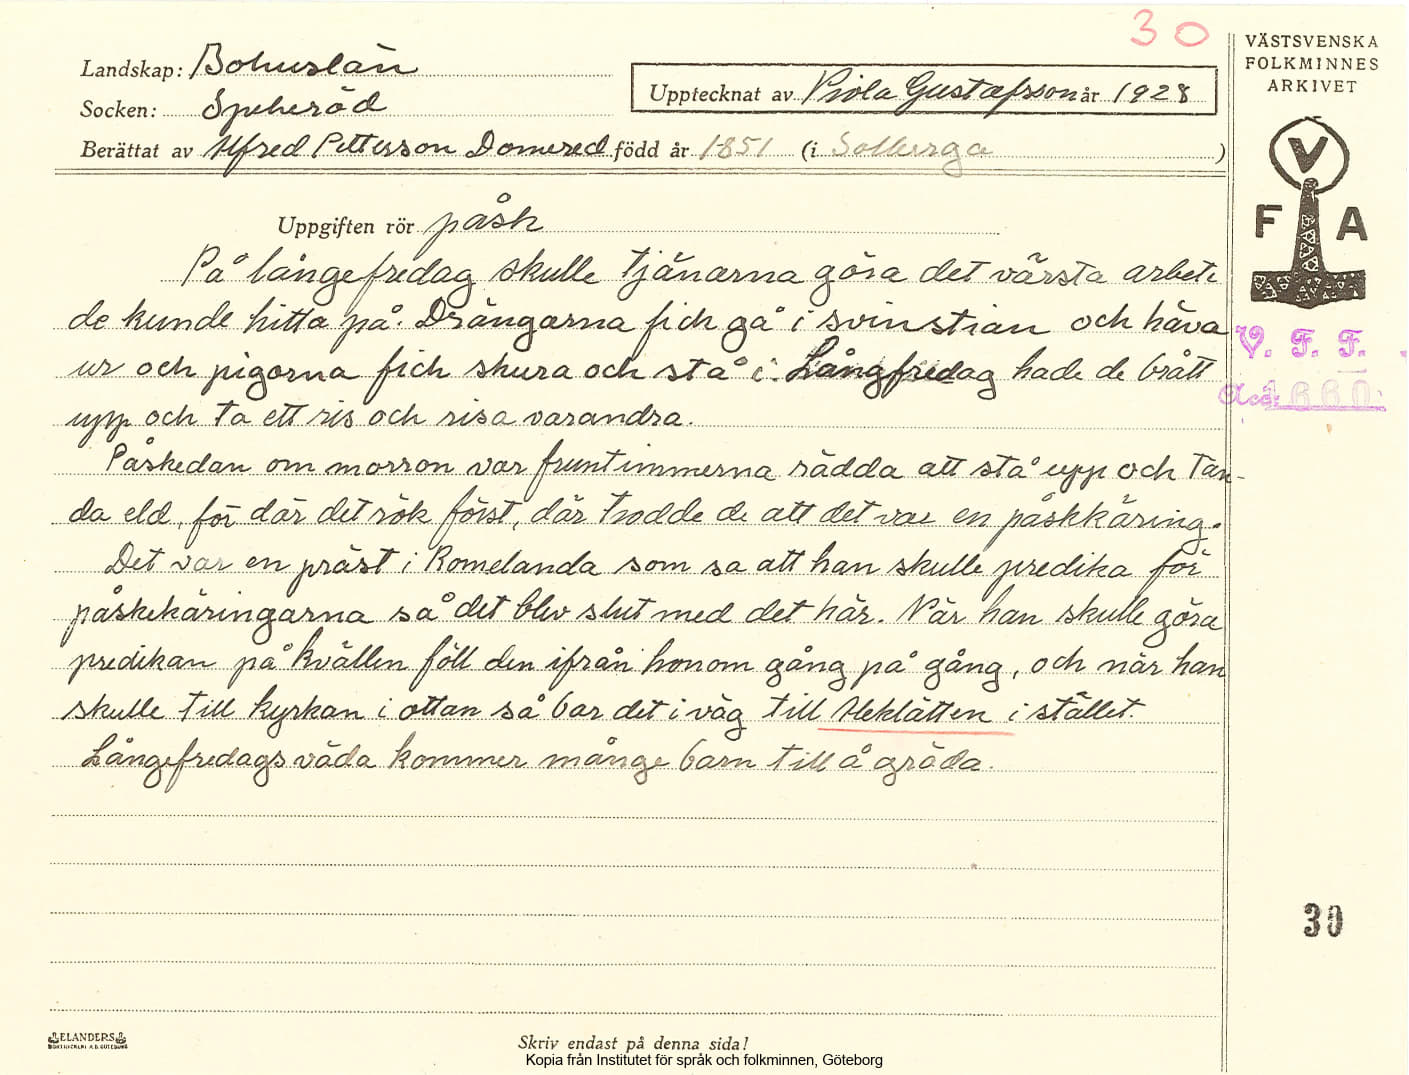 30
VÄSTSVENSKA
FOLKMINNES
ARKIVET
Landskap: Bohuslän
Socken: Spekeröd
Upptecknat av Viola Gustafsson år 1928
Berättat av Alfred Pettersson Domered född år 1851 (i Solberga)
V
F A
Uppgiften rör påsk
På långefredag skulle tjänarna göra det värsta arbete
de kunde hitta på. Drängarna fick gå i svinstian och håva
ur och pigorna fick skura och stå i. Långfredag hade de brått
upp och ta ett ris och risa varandra.
Påskedan om morron var fruntimmerna rädda att stå upp och tän-
da eld, för där det rök först, där trodde de att det var en påskkäring.
Det var en präst i Romelanda som sa att han skulle predika för
påskekäringarna så det blev slut med det här. När han skulle göra
predikan på kvällen föll den ifrån honom gång på gång, och när han
skulle till kyrkan i ottan så bar det i väg till Aleklätten i stället.
Långefredags väda kommer månge barn till å gräda.
V. F. F.
Acc: 1660
30
ELANDERS
BOKTRYCKERI A.B. GÖTEBORG
Skriv endast på denna sida!
Kopia från Institutet för språk och folkminnen, Göteborg